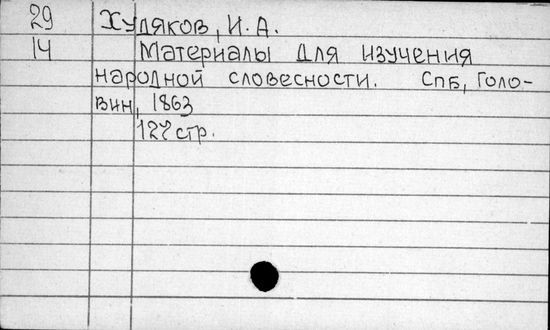 29 Худяков, И. А.
14 Материалы для изучения
народной словесности. СПБ, Голо-
вин, 1863
127 стр.